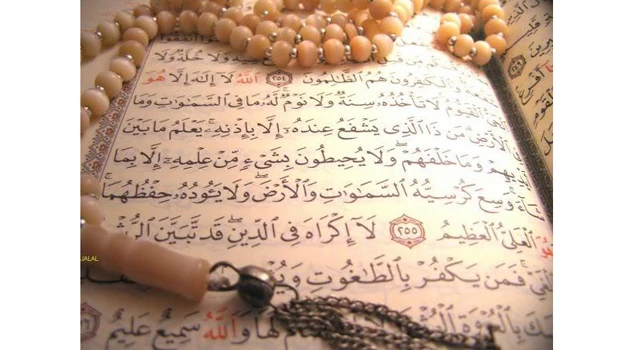 خُلَّةٌ وَلَا
وَٱلْكَٰفِرُونَ هُمُ ٱلظَّٰلِمُونَ ٢٥٤ ٱللَّهُ لَآ إِلَٰهَ إِلَّا هُوَ
ٱلْقَيُّومُ لَا تَأْخُذُهُۥ سِنَةٌ وَلَا نَوْمٌ لَّهُۥ مَا فِى ٱلسَّمَٰوَٰتِ وَمَا
ٱلْأَرْضِ مَن ذَا ٱلَّذِى يَشْفَعُ عِندَهُۥٓ إِلَّا بِإِذْنِهِۦ يَعْلَمُ مَا بَيْنَ
أَيْدِيهِمْ وَمَا خَلْفَهُمْ وَلَا يُحِيطُونَ بِشَىْءٍ مِّنْ عِلْمِهِۦٓ إِلَّا بِمَا
شَآءَ وَسِعَ كُرْسِيُّهُ ٱلسَّمَٰوَٰتِ وَٱلْأَرْضَ وَلَا يَـُٔودُهُۥ حِفْظُهُمَا
ٱلْعَلِىُّ ٱلْعَظِيمُ ٢٥٥ لَآ إِكْرَاهَ فِى ٱلدِّينِ قَد تَّبَيَّنَ ٱلرُّشْدُ
فَمَن يَكْفُرْ بِٱلطَّٰغُوتِ
بِٱلْعُرْوَةِ لَهَا وَٱللَّهُ سَمِيعٌ عَلِيمٌ
JALAL